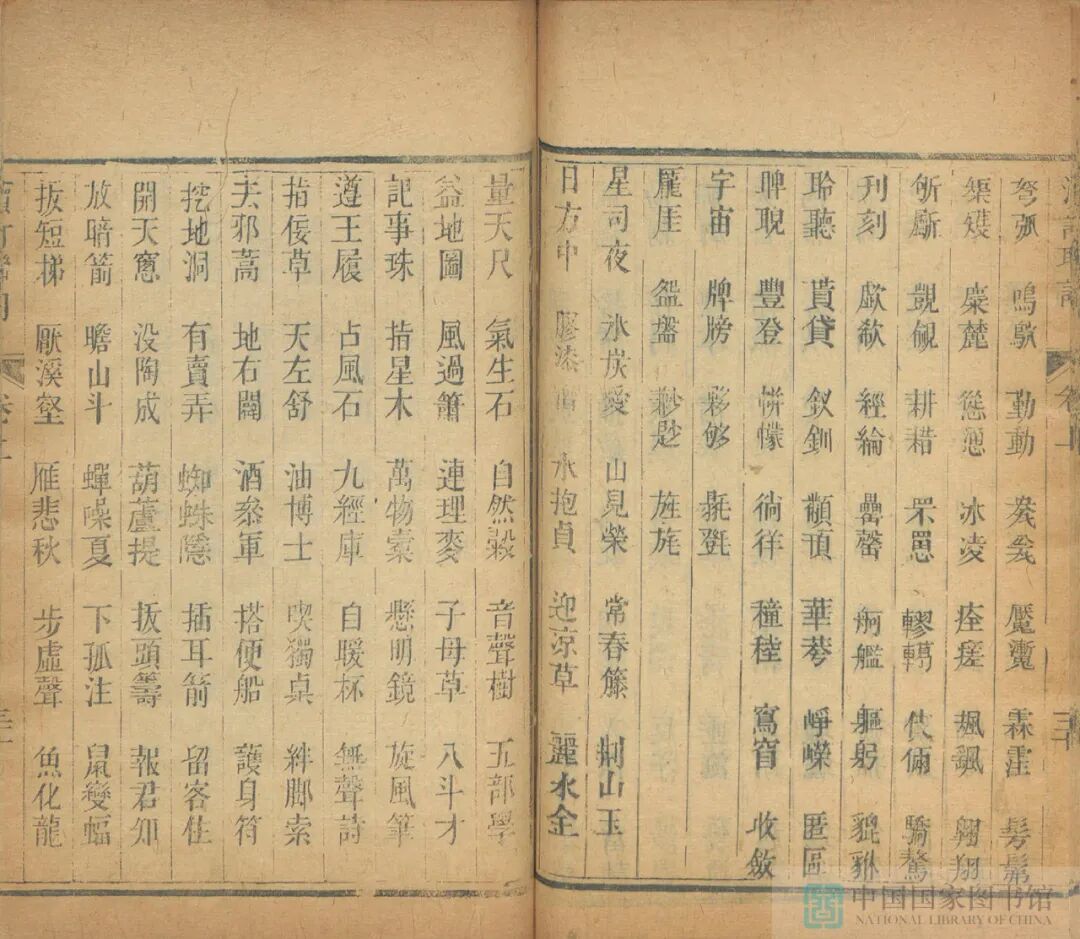 弩弧 鳴䳄 勤動 魘魔 霖霪 髣髴
榘矱 麋麓 慫慂 冰凌 痊瘥 颯颯 翱翔
斫斸 覬覦 耕耤 罘罳 轇轕 伎倆 驕驁
刋刻 歔欷 經綸 罍罄 舸艦 軀躬 貔貅
聆聽 貢貸 釵釧 顓頊 華蕚 崢嶸 匿區
睥睨 豐登 帡幪 徜徉 穜稑 窩窅 收斂
宇宙 牌牓 夥够 㲲㲪
龎厓 盤盤 旌旄
星司夜 氷炭愛 山見榮 常春籐 荆山玉
日方中 膠漆 水抱貞 迎凉草 麗水金
量天尺 氣生石 自然榖 音聲樹 五部學
益地圖 風過簫 連理麥 子母草 八斗才
記事珠 指星木 萬物橐 懸明鏡 旋風筆
遵王履 占風石 九經庫 自暖杯 無聲詩
指佞草 天左舒 油博士 喫獨桌 絆脚索
去邪蒿 地右闢 酒叅軍 搭便船 護身符
挖地洞 有賣弄 蜘蛛隱 插耳箭 留客住
開天窻 没陶成 葫蘆提 扳頭籌 報君知
放暗箭 瞻山斗 蟬噪夏 下孤注 鼠變蝠
拔短梯 厭溪壑 雁悲秋 步虛聲 魚化龍
卷十
中国国家图书馆
NATIONAL LIBRARY OF CHINA